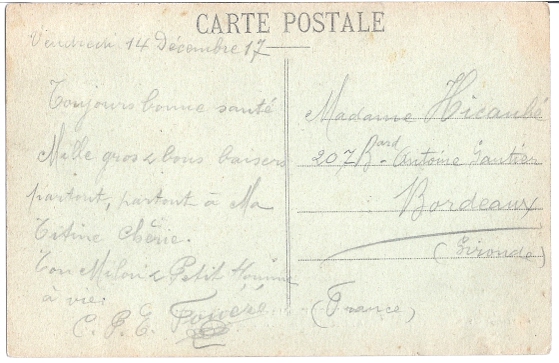 CARTE POSTALE
Vendredi 14 Décembre 17
Toujours bonne santé
Mille gros & bons baisers
partout, partout à Ma
Titine Chérie.
Ton Milou & Petit Homme
à vie.
C. P. E.
Madame
207 Bard Antoine Gautier
Bordeaux
(Gironde)
(France)